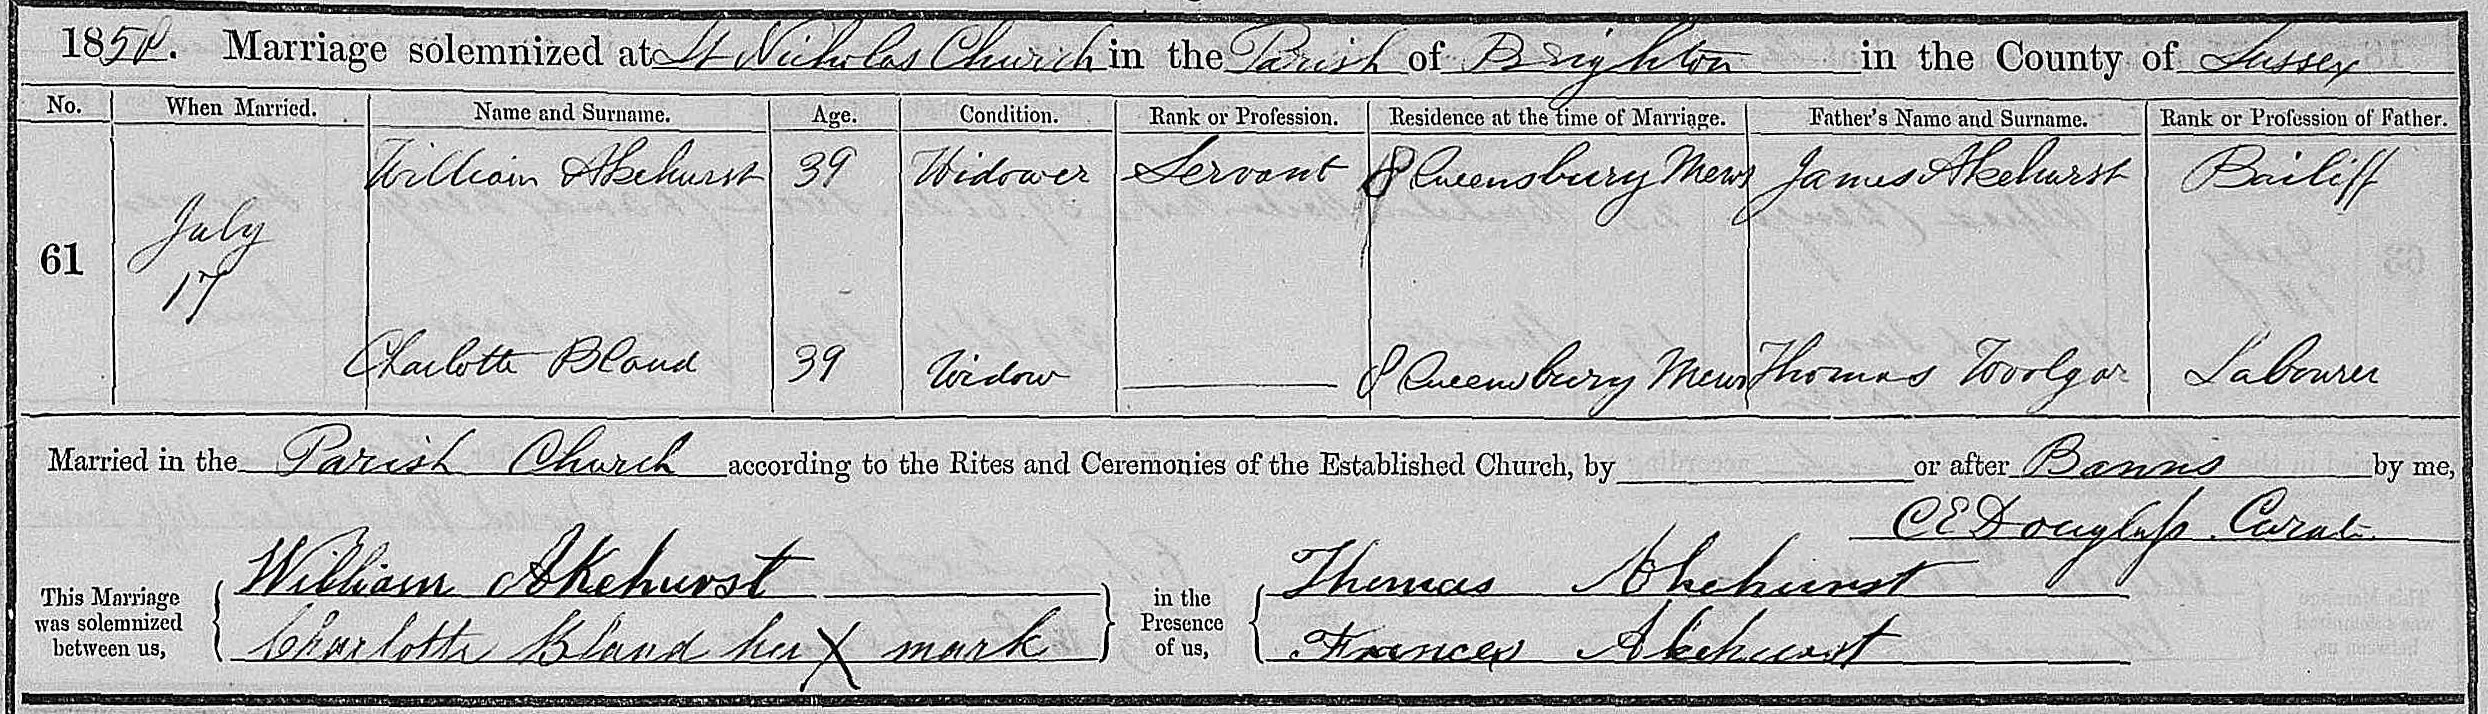 1858. Marriage solemnized at St Nicholas Church in the Parish of Brighton in the County of Sussex
No. When Married. Name and Surname. Age. Condition. Rank or Profession. Residence at the time of Marriage. Father's Name and Surname. Rank or Profession of Father.
61 July 17 William Akehurst 39 Widower Servant 8 Queensbury Mews James Akehurst Bailiff
Charlotte Bland 39 Widow 8 Queensbury Mews Thomas Woolgar Labourer
Married in the Parish Church according to the Rites and Ceremonies of the Established Church, by or after Banns by me,
C E Douglass Curate
This Marriage was solemnized between us, William Akehurst in the Presence of us, Thomas Akehurst
Charlotte Bland her X mark Frances Akehurst